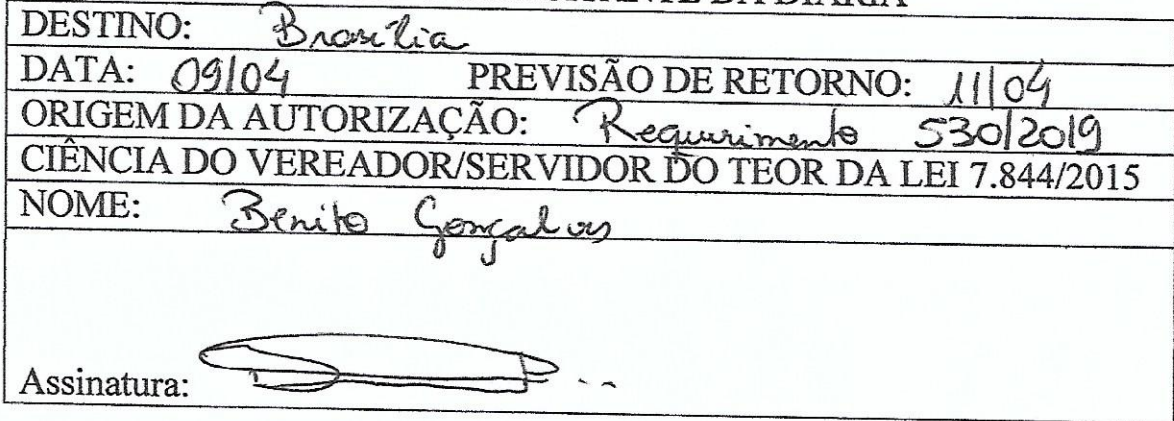 DA DIÁRIA
DESTINO: Brasília
DATA: 09/04 PREVISÃO DE RETORNO: 11/04
ORIGEM DA AUTORIZAÇÃO: Requerimento 530/2019
CIÊNCIA DO VEREADOR/SERVIDOR DO TEOR DA LEI 7.844/2015
NOME: Benito Gonçalves
Assinatura: